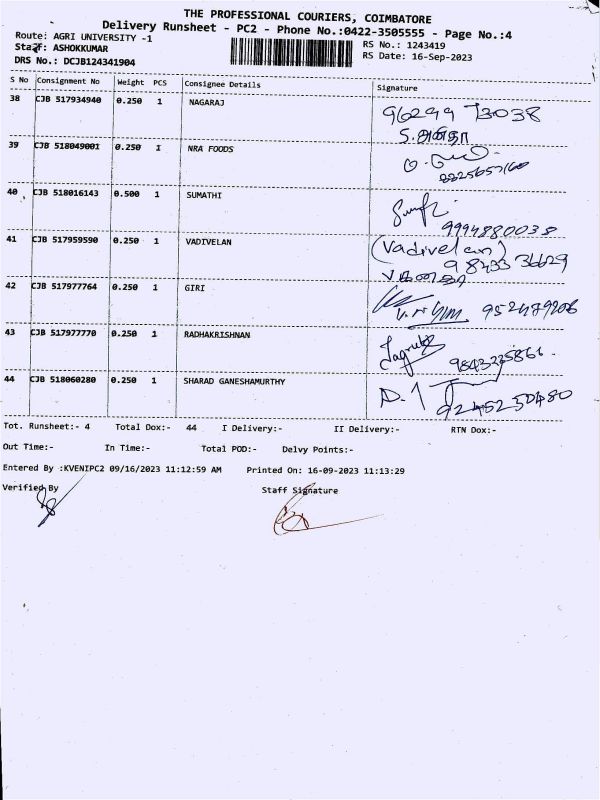 THE PROFESSIONAL COURIERS, COIMBATORE
Delivery Runsheet - PC2 - Phone No.:0422-3505555 - Page No.:4
Route: AGRI UNIVERSITY -1
RS No.: 1243419
Staff: ASHOKKUMAR
RS Date: 16-Sep-2023
DRS No.: DCJB124341904
S No Consignment No Weight PCS Consignee Details Signature
38 CJB 517934940 0.250 1 NAGARAJ
96299 73038
39 CJB 518049001 0.250 1 NRA FOODS
40 CJB 518016143 0.500 1 SUMATHI
9994880038
41 CJB 517959590 0.250 1 VADIVELAN
(Vadivelan)
98433 36629
42 CJB 517977764 0.250 1 GIRI
43 CJB 517977770 0.250 1 RADHAKRISHNAN
44 CJB 518060280 0.250 1 SHARAD GANESHAMURTHY
Tot. Runsheet:- 4 Total Dox:- 44 I Delivery:- II Delivery:- RTN Dox:-
Out Time:- In Time:- Total POD:- Delvy Points:-
Entered By :KVENIPC2 09/16/2023 11:12:59 AM Printed On: 16-09-2023 11:13:29
Verified By Staff Signature